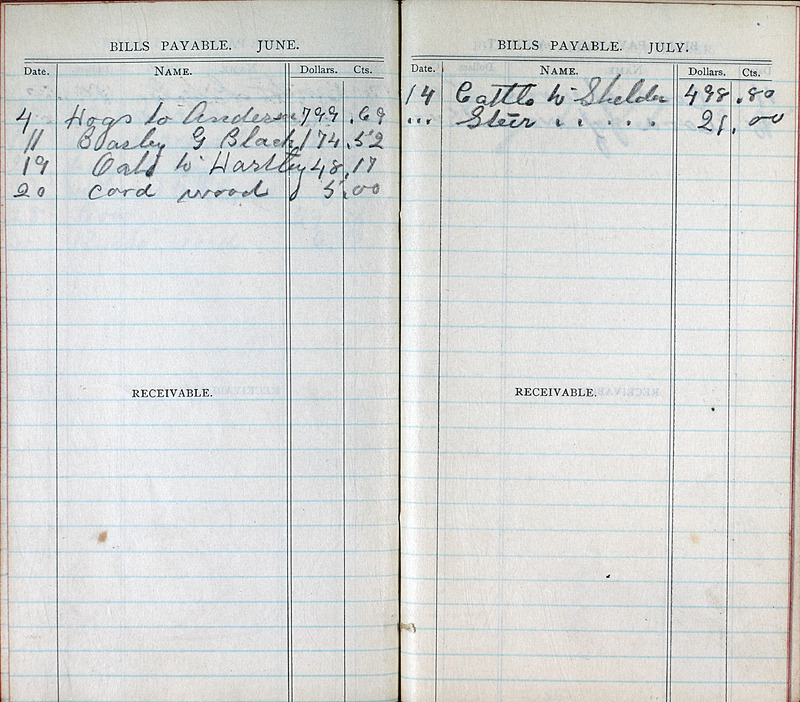 BILLS PAYABLE. JUNE.
Date. NAME. Dollars. Cts.
4 Hogs to Anderson 799.69
11 Boasley G Black 174.52
19 Oats to Hartley 48.17
20 cord wood 5.00
RECEIVABLE.
BILLS PAYABLE. JULY.
Date. NAME. Dollars. Cts.
14 Cattle to Shelder 498.80
... Steer . . . . . 21.00
RECEIVABLE.